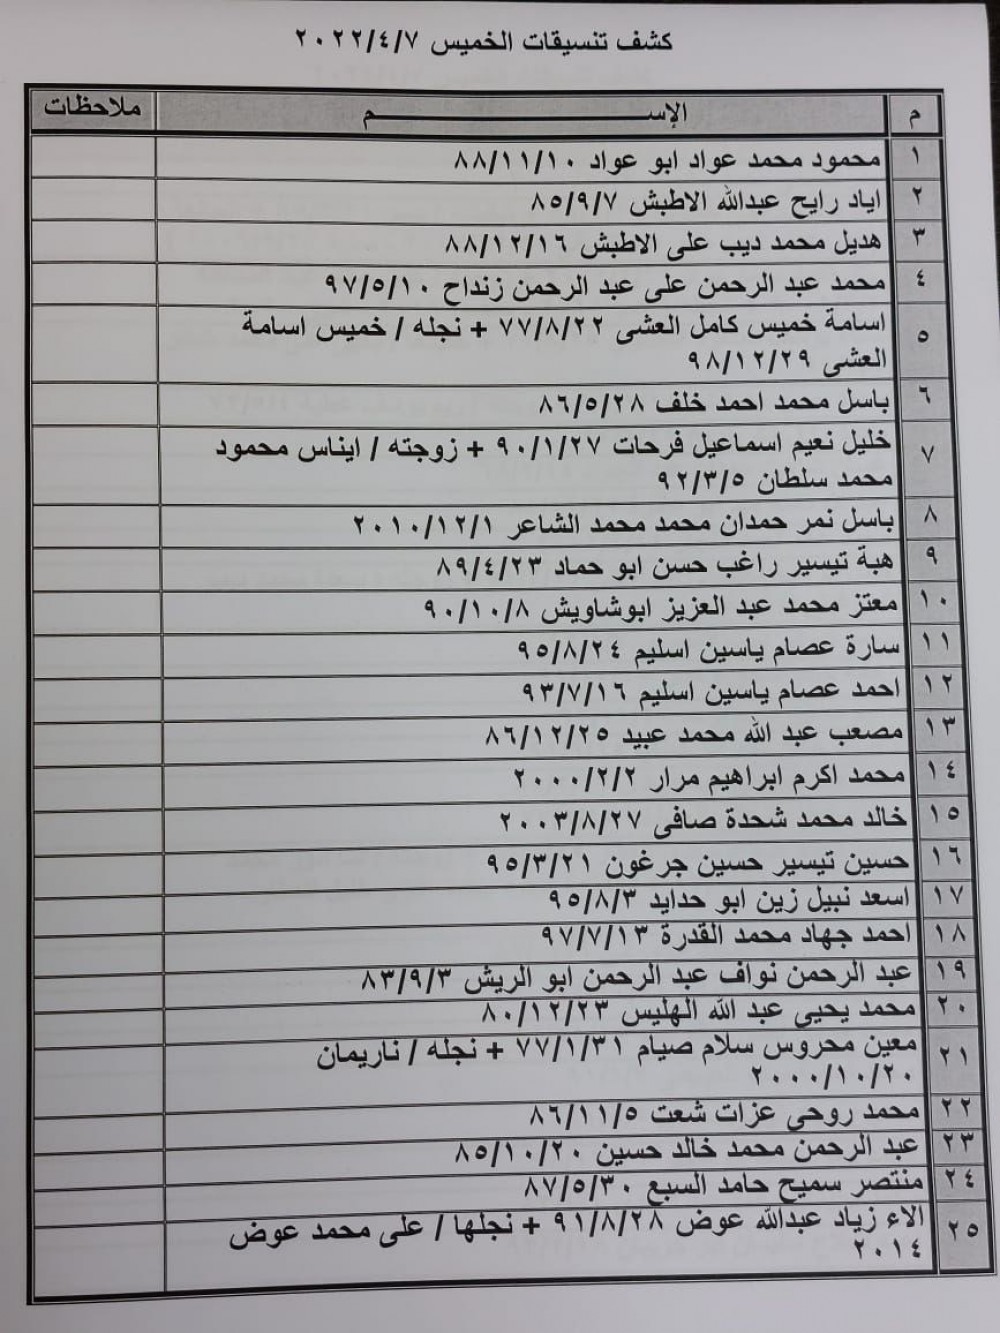 كشف تنسيقات الخميس ٢٠٢٢/٤/٧
م الإســـــــــــــم ملاحظات
١ محمود محمد عواد ابو عواد ٨٨/١١/١٠
٢ اياد رايح عبدالله الاطبش ٨٥/٩/٧
٣ هديل محمد ديب على الاطبش ٨٨/١٢/١٦
٤ محمد عبد الرحمن على عبد الرحمن زنداح ٩٧/٥/١٠
٥ اسامة خميس كامل العشى ٧٧/٨/٢٢ + نجله / خميس اسامة
العشى ٩٨/١٢/٢٩
٦ باسل محمد احمد خلف ٨٦/٥/٢٨
٧ خليل نعيم اسماعيل فرحات ٩٠/١/٢٧ + زوجته / ايناس محمود
محمد سلطان ٩٢/٣/٥
٨ باسل نمر حمدان محمد محمد الشاعر ٢٠١٠/١٢/١
٩ هبة تيسير راغب حسن ابو حماد ٨٩/٤/٢٣
١٠ معتز محمد عبد العزيز ابوشاويش ٩٠/١٠/٨
١١ سارة عصام ياسين اسليم ٩٥/٨/٢٤
١٢ احمد عصام ياسين اسليم ٩٣/٧/١٦
١٣ مصعب عبد الله محمد عبيد ٨٦/١٢/٢٥
١٤ محمد اكرم ابراهيم مرار ٢٠٠٠/٢/٢
١٥ خالد محمد شحدة صافى ٢٠٠٣/٨/٢٧
١٦ حسين تيسير حسين جرغون ٩٥/٣/٢١
١٧ اسعد نبيل زين ابو حدايد ٩٥/٨/٣
١٨ احمد جهاد محمد القدرة ٩٧/٧/١٣
١٩ عبد الرحمن نواف عبد الرحمن ابو الريش ٨٣/٩/٣
٢٠ محمد يحيى عبد الله الهليس ٨٠/١٢/٢٣
٢١ معين محروس سلام صيام ٧٧/١/٣١ + نجله / ناريمان
٢٠٠٠/١٠/٢٠
٢٢ محمد روحي عزات شعت ٨٦/١١/٥
٢٣ عبد الرحمن محمد خالد حسين ٨٥/١٠/٢٠
٢٤ منتصر سميح حامد السبع ٨٧/٥/٣٠
٢٥ الاء زياد عبدالله عوض ٩١/٨/٢٨ + نجلها / على محمد عوض
٢٠١٤